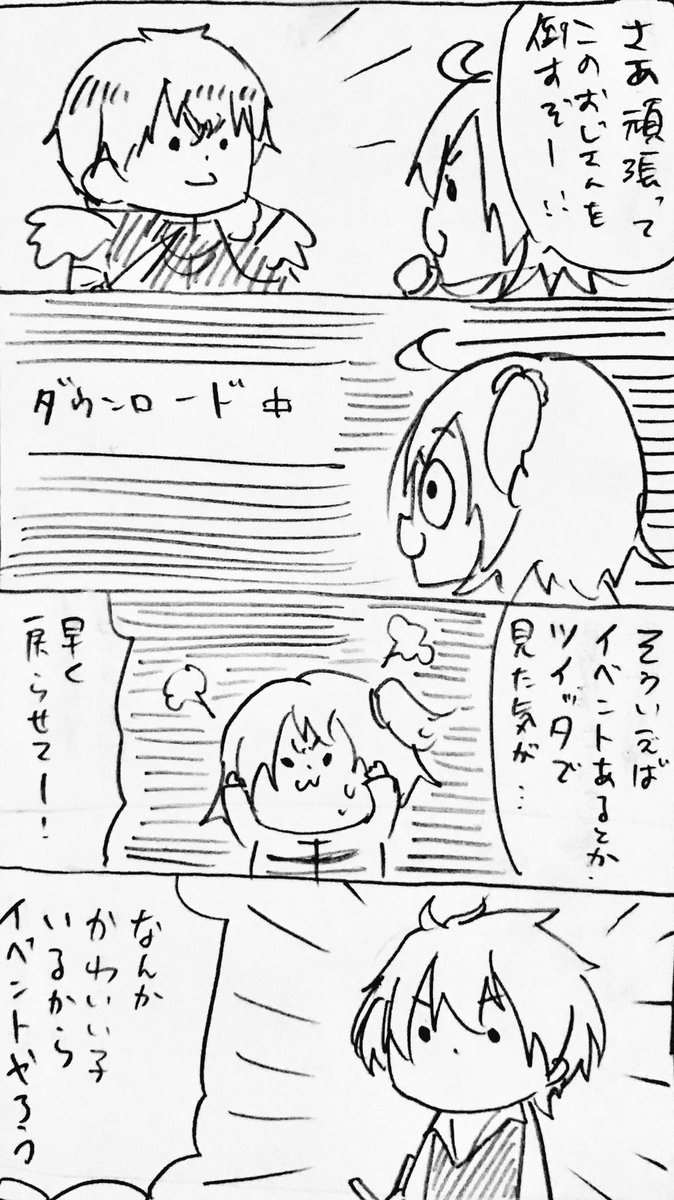 さあ頑張って
このおじさんを
倒すぞー!!
ダウンロード中
そういえば
イベントあるとか
ツイッタで
見た気が…
早く
戻らせてー!
なんか
かわいい子
いるから
イベントやろう